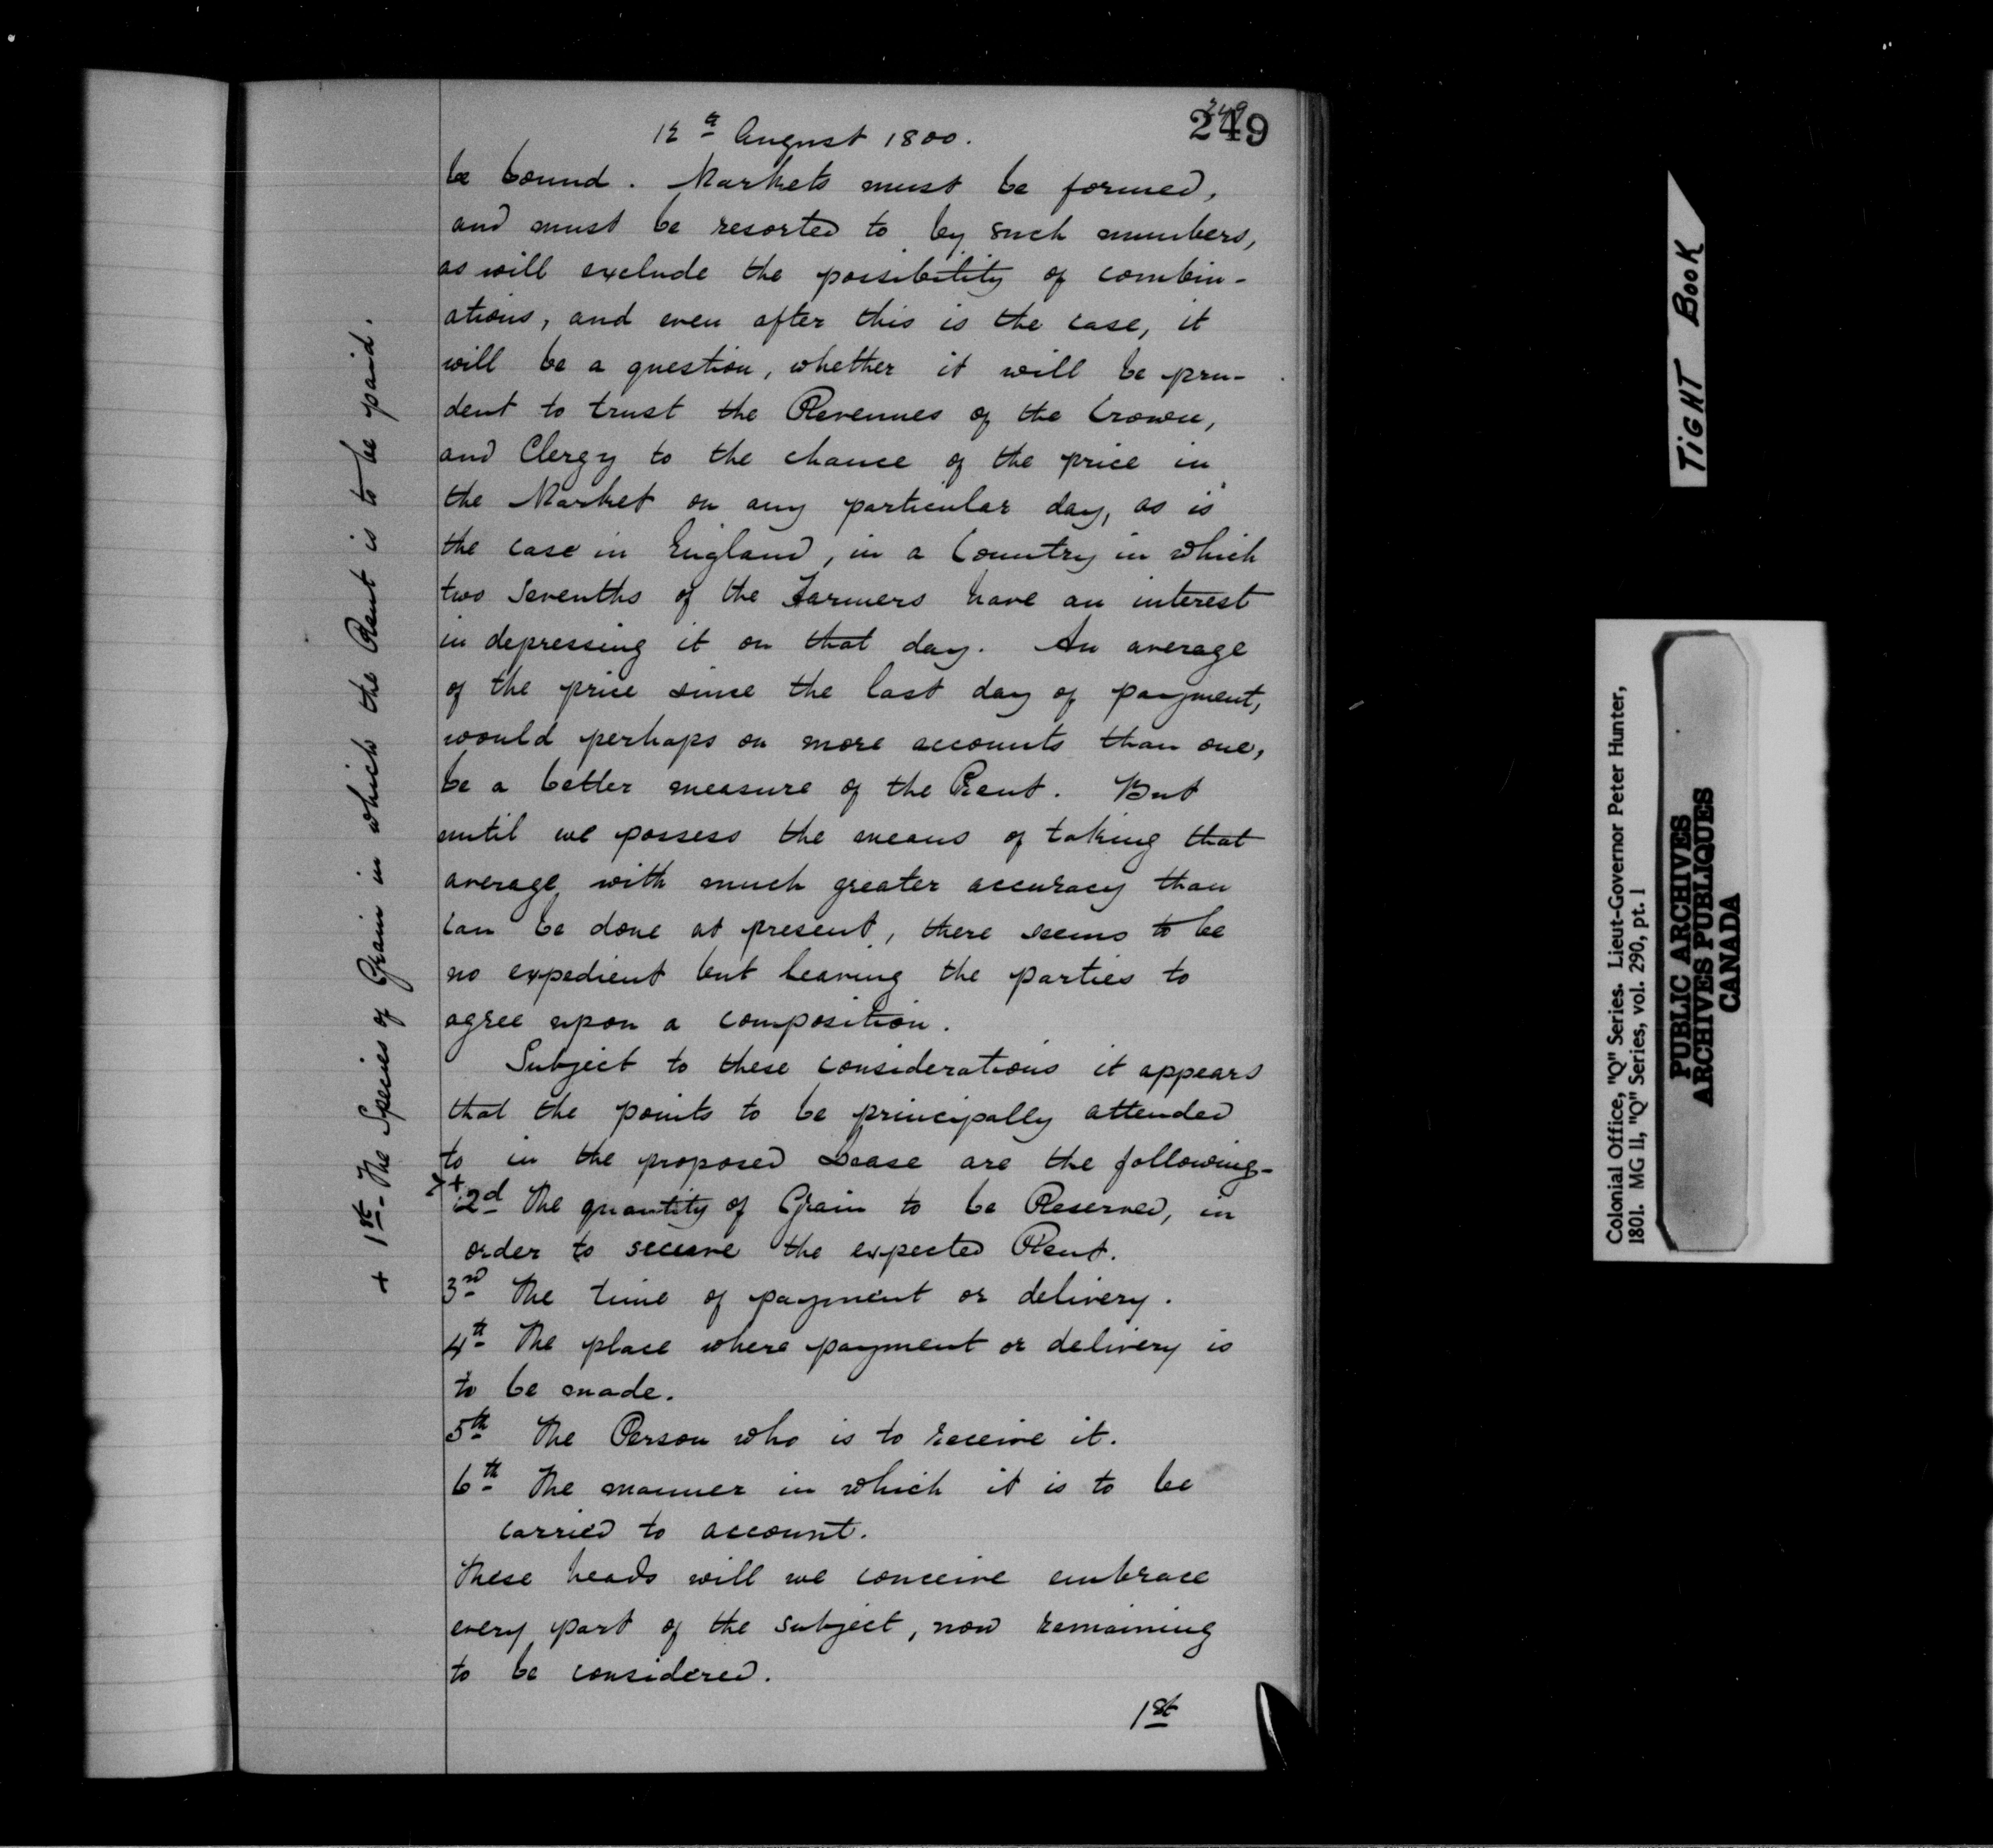 249
249
12th August 1800.
be bound. Markets must be formed,
and must be resorted to by such numbers,
as will exclude the possibility of combin-
ations, and even after this is the case, it
will be a question, whether it will be pru-
dent to trust the Revenues of the Crown,
and Clergy to the chance of the price in
the Market on any particular day, as is
the case in England, in a Country in which
two sevenths of the Farmers have an interest
in depressing it on that day. An average
of the price since the last day of payment,
would perhaps on more accounts than one,
be a better measure of the Rent. But
until we possess the means of taking that
average, with much greater accuracy than
can be done at present, there seems to be
no expedient but leaving the parties to
agree upon a composition.
Subject to these considerations it appears
that the points to be principally attended
to in the proposed Lease are the following-
+ 2d The quantity of Grain to be Reserved, in
order to secure the expected Rent.
3rd The time of payment or delivery.
4th The place where payment or delivery is
to be made.
5th The Person who is to receive it.
6th The manner in which it is to be
carried to account.
These heads will we conceive embrace
every part of the subject, now remaining
to be considered.
1st
+ 1st- The Species of Grain in which the Rent is to be paid.
TIGHT BOOK
Colonial Office, "Q" Series. Lieut-Governor Peter Hunter,
1801. MG 11, "Q" Series, vol. 290, pt. 1
PUBLIC ARCHIVES
ARCHIVES PUBLIQUES
CANADA